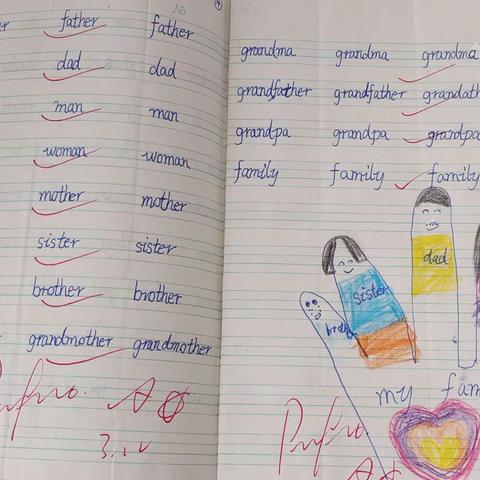 No
father father
dad dad
man man
woman woman
mother mother
sister sister
brother brother
grandmother grandmother
grandma grandma grandma
grandfather grandfather grandath
grandpa grandpa grandpa
family family family
dad
sister
my fam